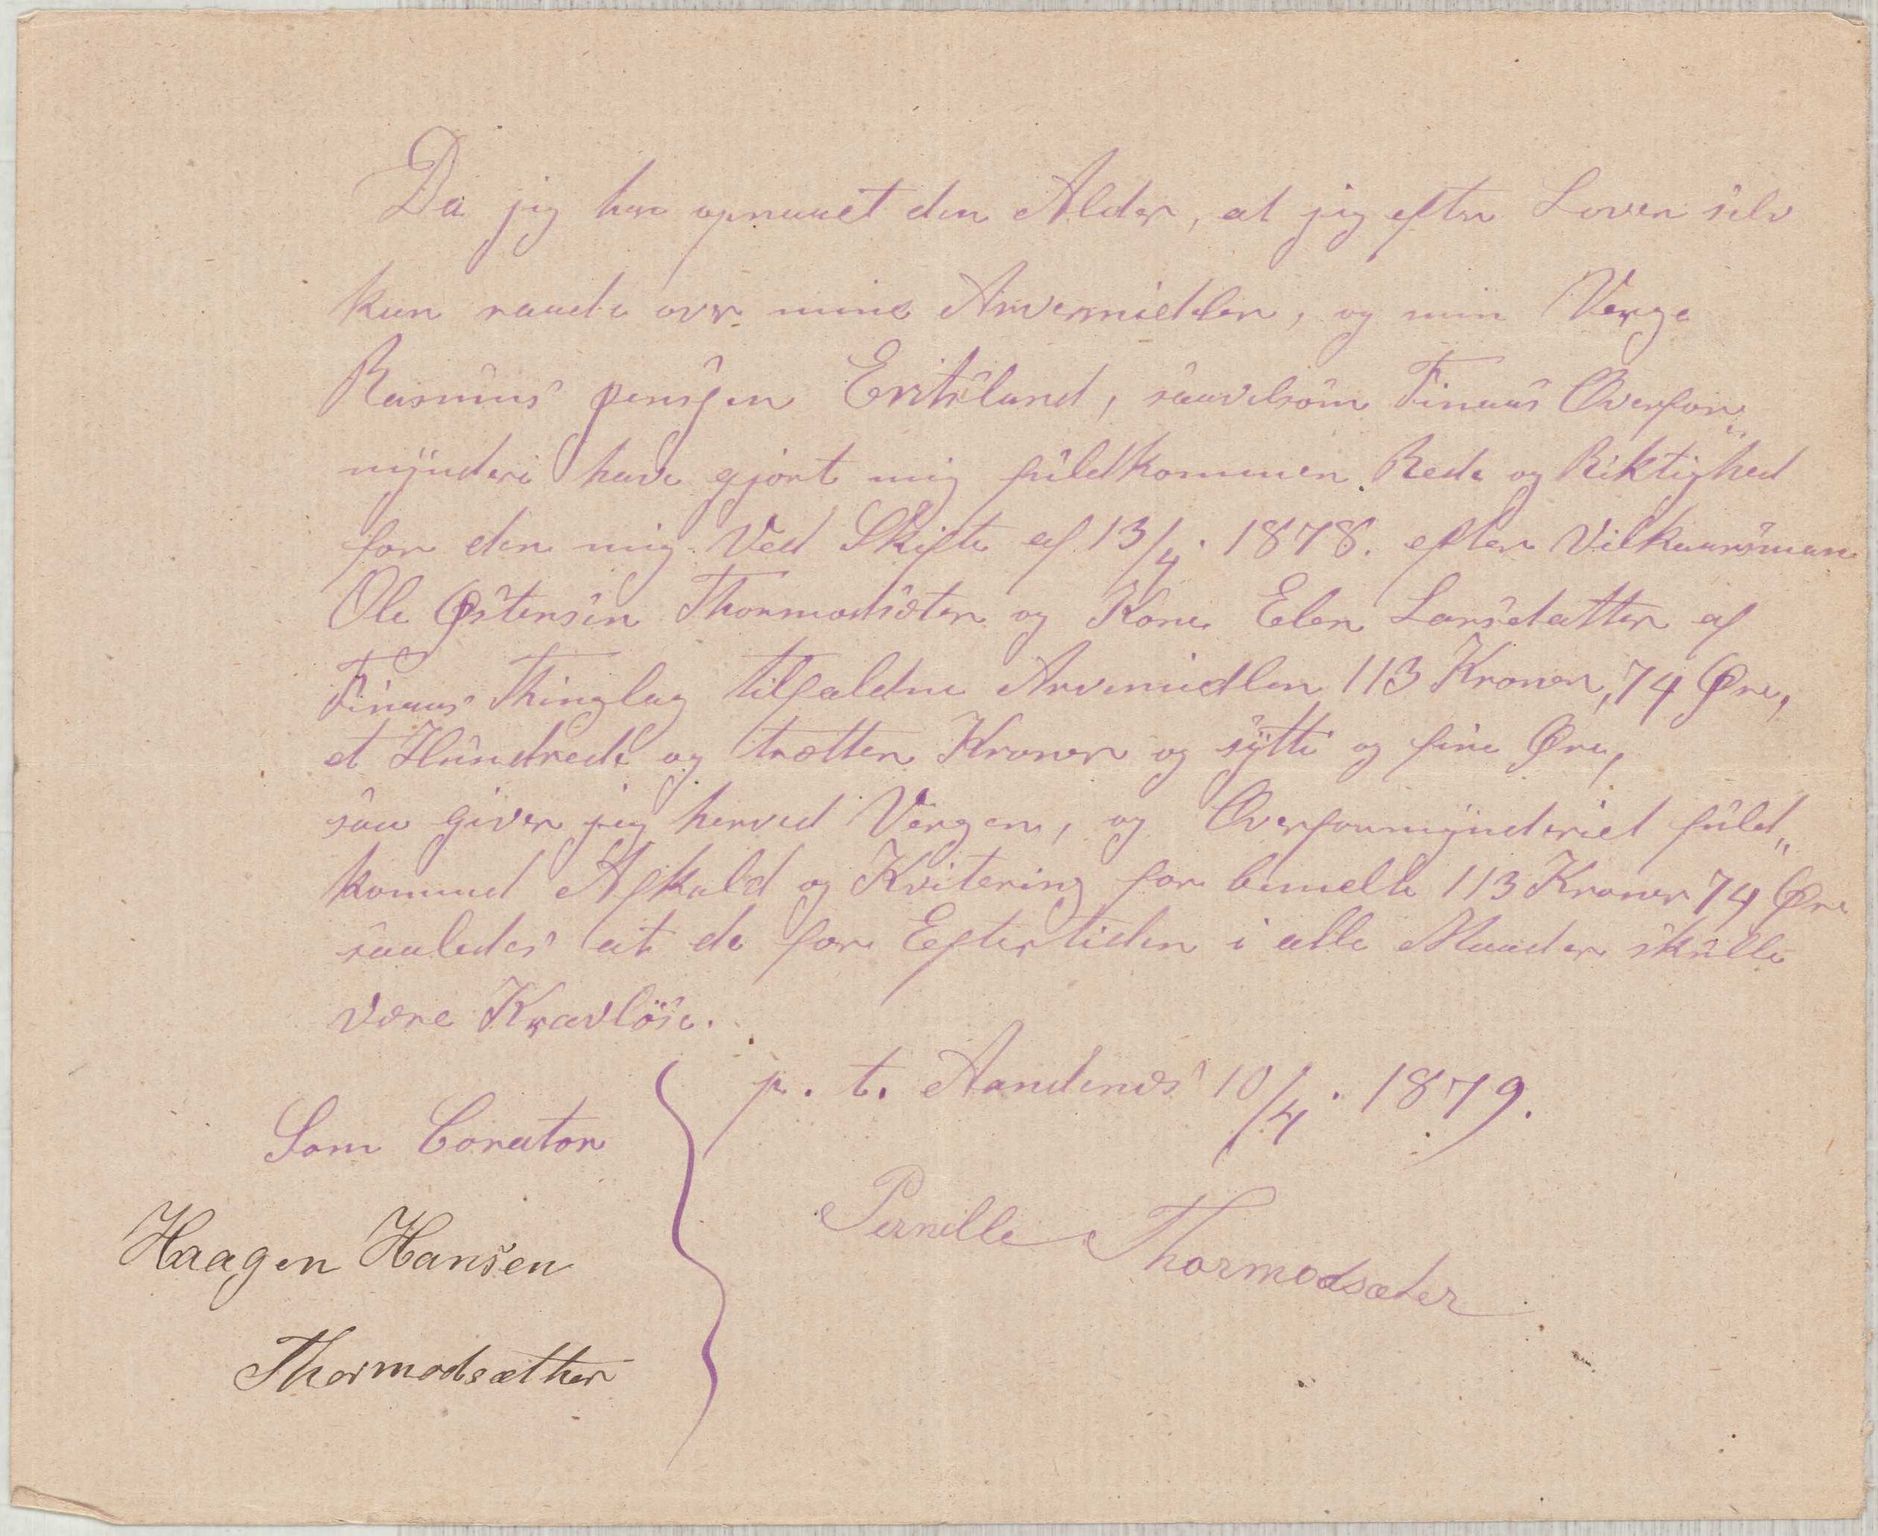 Da jeg har opnaaet den Alder, at jeg efter Loven selv
kan raade over mine Arvemidler, og min Verge
Rasmus Jensen Eritsland, saavelsom Finaas Overfor„
mynderi have gjort mig fuldkommen Rede og Riktighed
for den mig Ved Skifte af 13/4. 1878. efter Vilkaarsman
Ole Østensen Thormodsæter og Kone Elen Larsdatter af
Finaas Thinglag tilfaldne Arvemidler 113 Kroner, 74 Øre,
et Hundrede og tretten Kroner og sytti og fire Øre,
saa giver jeg herved Vergen, og Overformynderiet fuld„
kommed Afkald og Kvitering for bemelte 113 Kroner 74 Øre
saaledes at de for Eftertiden i alle Maader skulle
være Kravløse.
p. t. Aandenæs 10/4. 1879.
Som Corator
Pernille Thormodsæter
Haagen Hansen
Thormodsæther